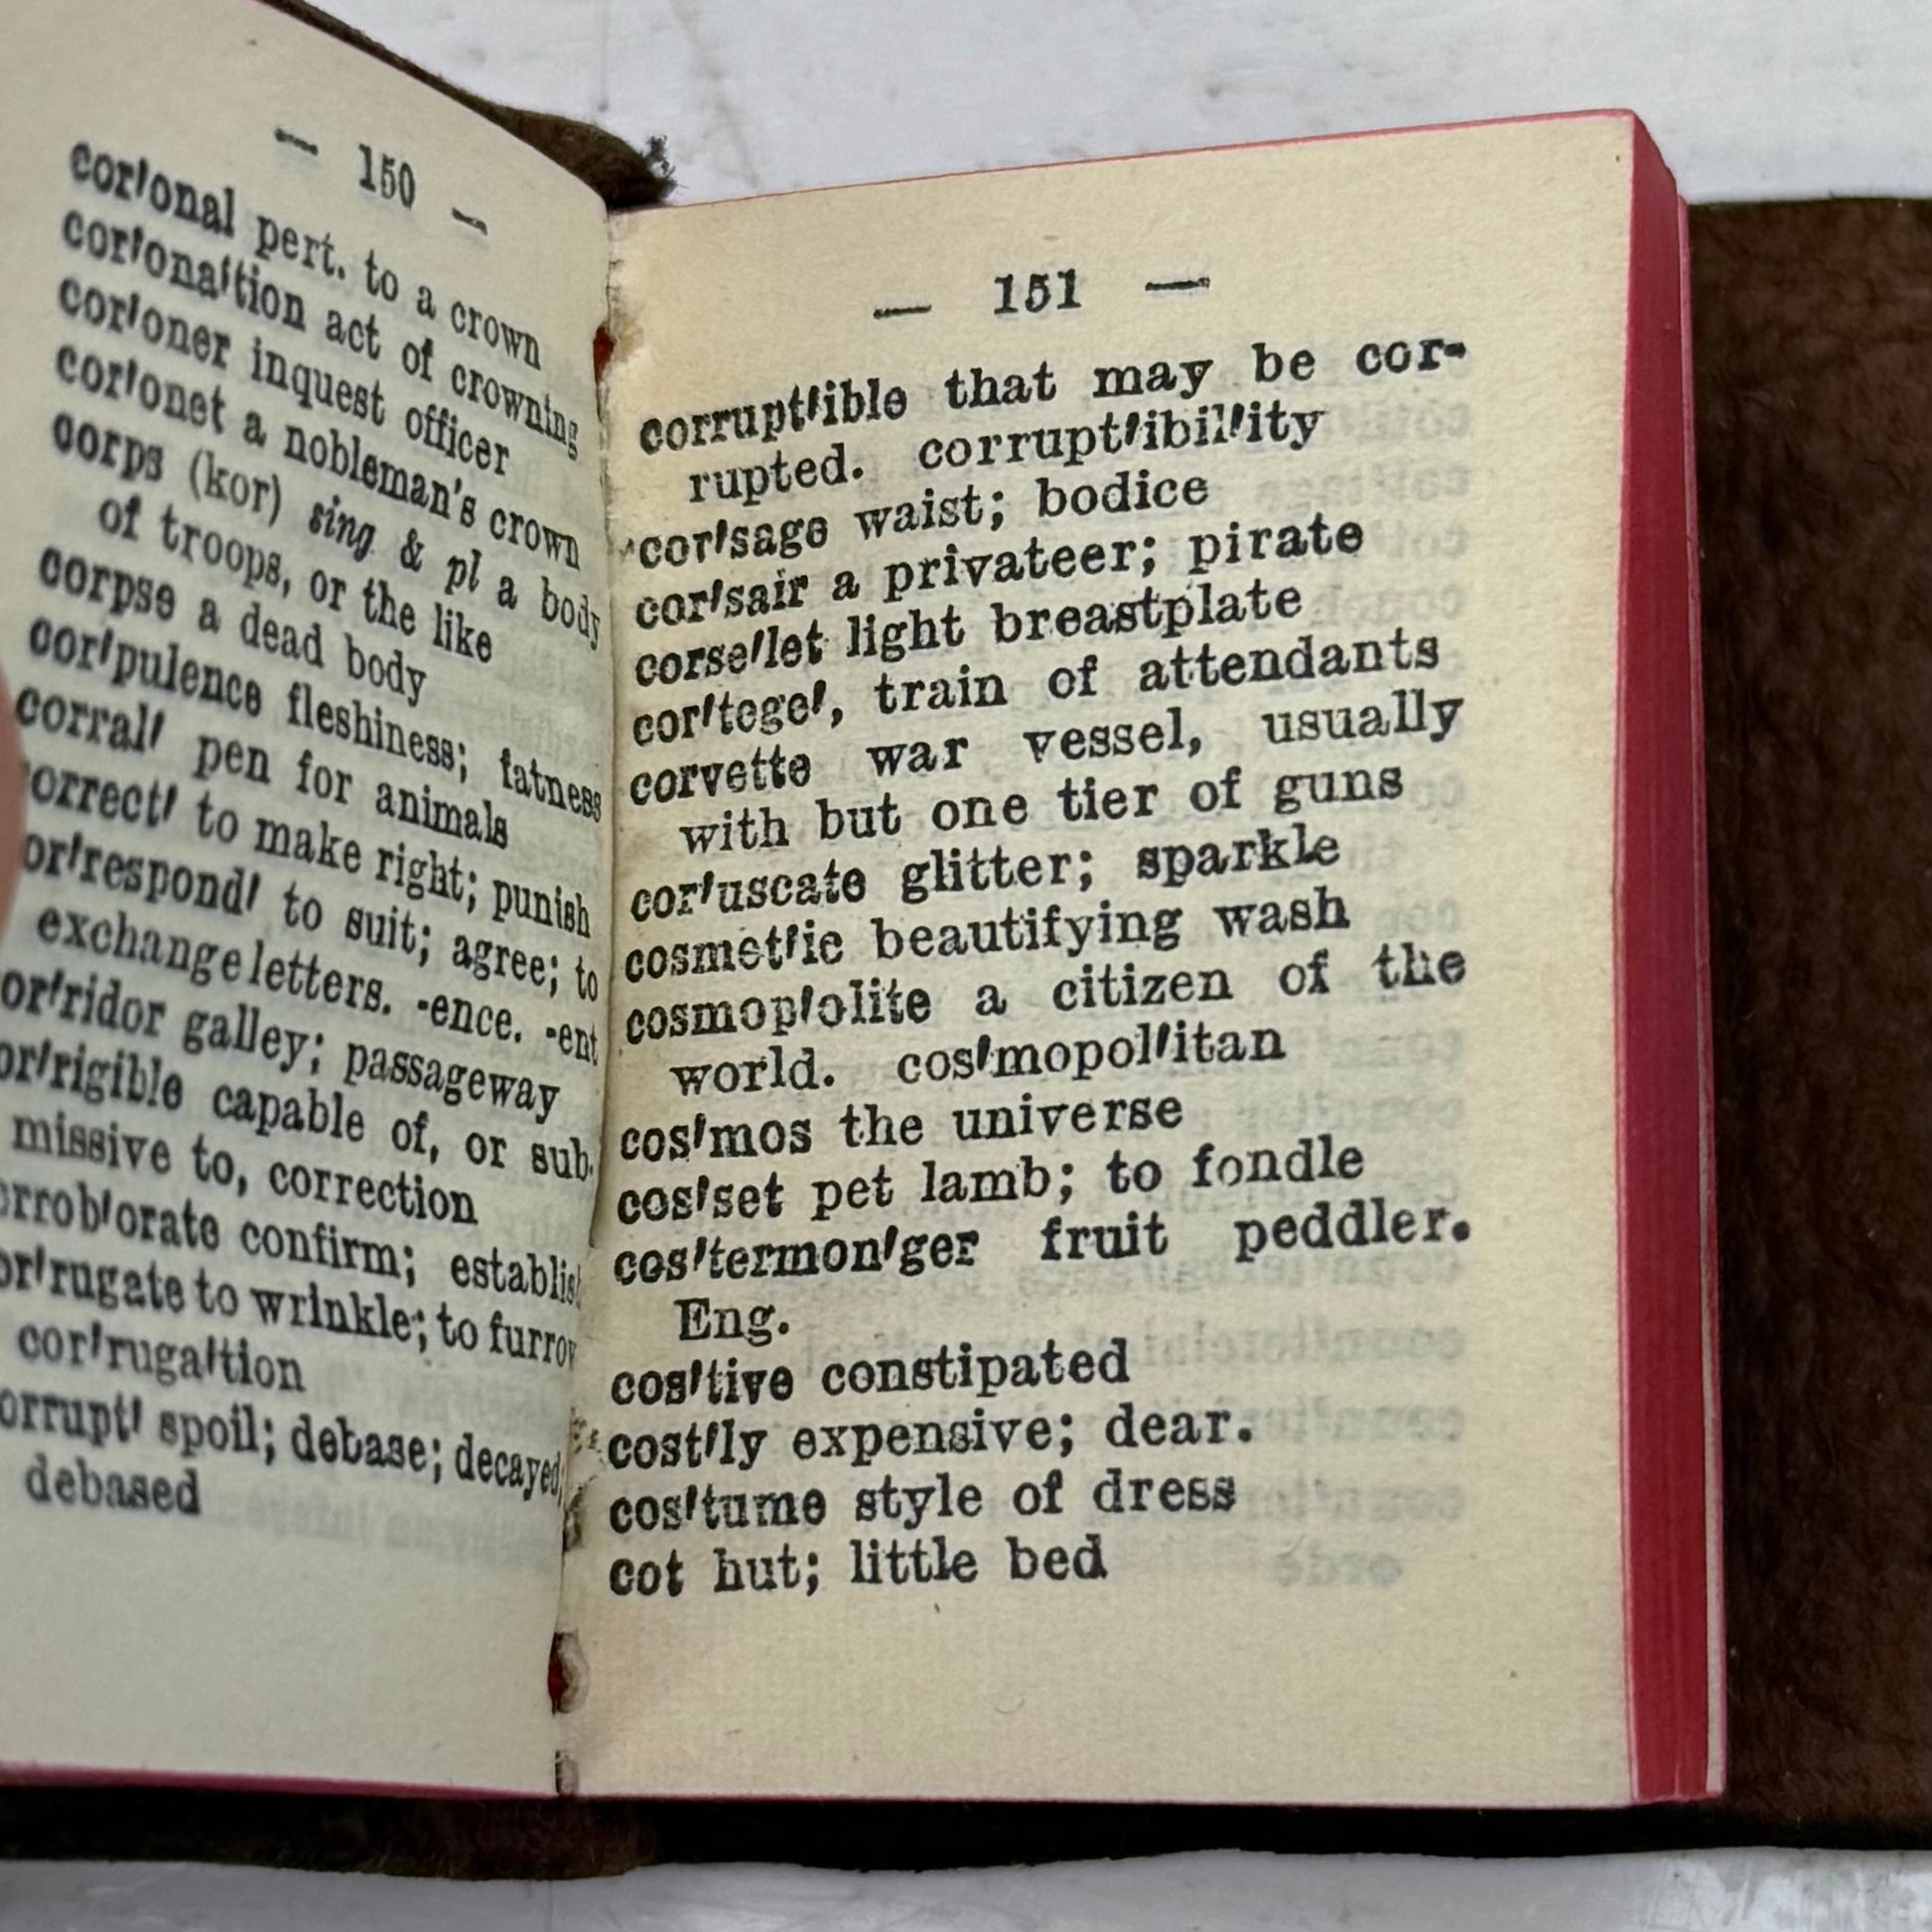 — 150 —
cor'onal pert. to a crown
cor'ona'tion act of crowning
cor'oner inquest officer
cor'onet a nobleman's crown
corps (kor) sing & pl a body
of troops, or the like
corpse a dead body
cor'pulence fleshiness; fatness
corral' pen for animals
orrect' to make right; punish
or'respond' to suit; agree; to
exchange letters. -ence. -ent
or'ridor galley; passageway
or'rigible capable of, or sub-
missive to, correction
orrob'orate confirm; establis
or'rugate to wrinkle; to furrow
cor'ruga'tion
orrupt' spoil; debase; decayed;
debased
— 151 —
corrupt'ible that may be cor-
rupted. corrupt'ibil'ity
cor'sage waist; bodice
cor'sair a privateer; pirate
corse'let light breastplate
cor'tege', train of attendants
corvette war vessel, usually
with but one tier of guns
cor'uscate glitter; sparkle
cosmet'ic beautifying wash
cosmop'olite a citizen of the
world. cos'mopol'itan
cos'mos the universe
cos'set pet lamb; to fondle
cos'termon'ger fruit peddler.
Eng.
cos'tive constipated
cost'ly expensive; dear.
cos'tume style of dress
cot hut; little bed